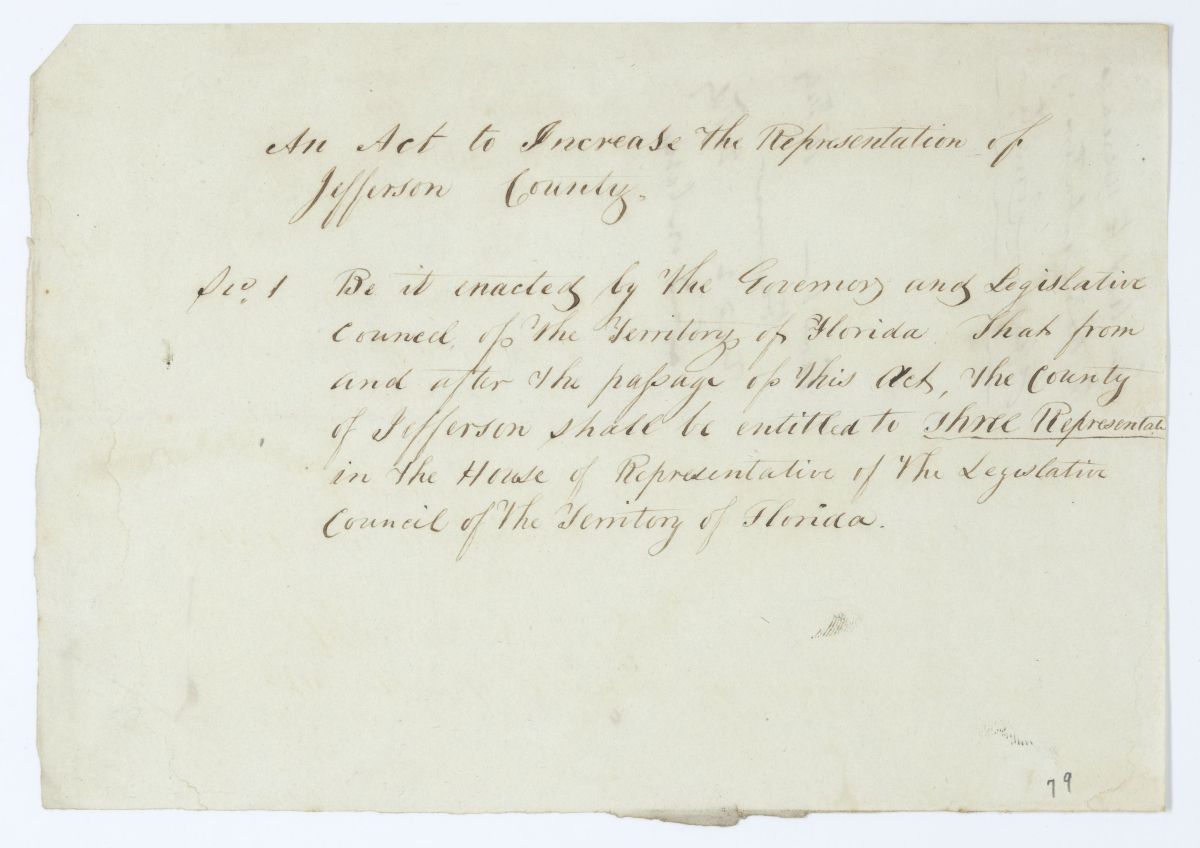 An Act to Increase the Representation of
Jefferson County.
Sec. 1 Be it enacted by the Governor and Legislative
Council, of the Territory of Florida That from
and after the passage of this Act, the County
of Jefferson shall be entitled to Three Representati
in the House of Representative of the Legislative
Council of the Territory of Florida.
79